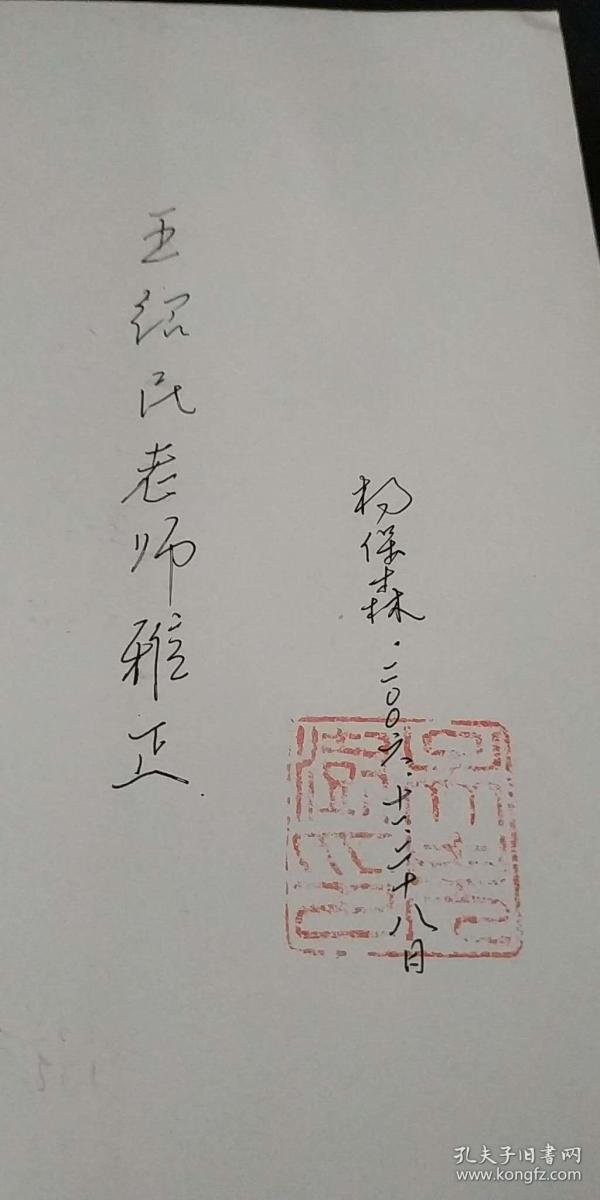 王绍民老师雅正
杨保森.二〇〇六.十.二十八日
孔夫子旧书网
www.kongfz.com